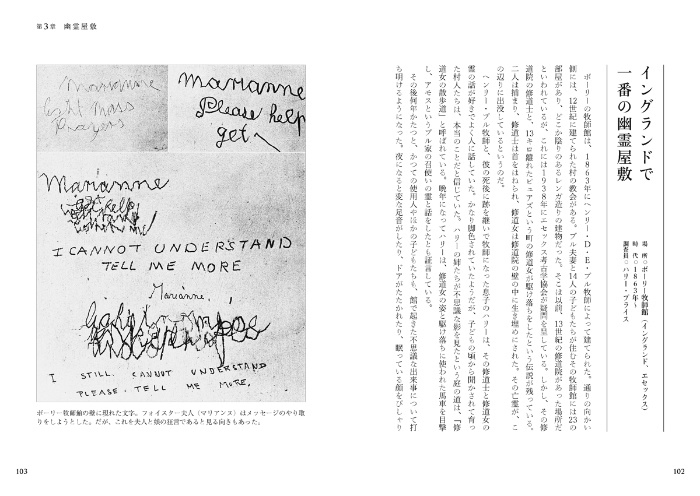 イングランドで
一番の幽霊屋敷
場　所○ボーリー牧師館（イングランド、エセックス）
時　代○1863年～
調査員○ハリー・プライス
ボーリーの牧師館は、1863年にヘンリー・D・E・ブル牧師によって建てられた。通りの向かい
側には、12世紀に建てられた村の教会がある。ブル夫妻と14人の子どもたちが住むその牧師館には23の
部屋があり、どこか陰りのあるレンガ造りの建物だった。そこは以前、13世紀の修道院があった場所だ
といわれているが、これには1938年にエセックス考古学協会が疑問を呈している。しかし、その修
道院の修道士と、13キロ離れたビュアズという町の修道女が駆け落ちをしたという伝説が残っている。
二人は捕まり、修道士は首をはねられ、修道女は修道院の壁の中に生き埋めにされた。その亡霊が、こ
の辺りに出没しているというのだ。
ヘンリー・ブル牧師と、彼の死後に跡を継いで牧師になった息子のハリーは、その修道士と修道女の
霊の話が好きでよく人に話していた。かなり脚色されていたようだが、子どもの頃から聞かされて育っ
た村人たちは、本当のことだと信じていた。ハリーの姉たちが不思議な影を見たという庭の道は、「修
道女の散歩道」と呼ばれている。晩年になってハリーは、修道女の姿と駆け落ちに使われた馬車を目撃
し、アモスというブル家の召使いの霊と話をしたとも証言している。
その後何年かたつと、かつての使用人やほかの子どもたちも、館で起きた不思議な出来事について打
ち明けるようになった。夜になると変な足音がしたり、ドアがたたかれたり、眠っている顔をぴしゃり
102
第3章　幽霊屋敷
Marianne
light mass
prayers
Marianne
Please help
get
Marianne
I CANNOT UNDERSTAND
TELL ME MORE
Marianne,
I STILL CANNOT UNDERSTAND
PLEASE TELL ME MORE,
ボーリー牧師館の壁に現れた文字。フォイスター夫人（マリアンヌ）はメッセージのやり取
りをしようとした。だが、これを夫人と娘の狂言であると見る向きもあった。
103